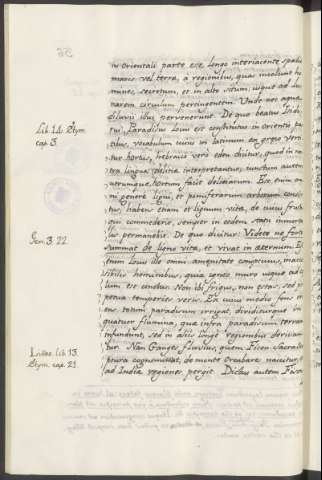 in Orientali parte esse longo interiacente spatio
maris vel terræ, à regionibus, quas incolunt ho-
mines, secretum, et in alto situm, usque ad lu-
narem circulum pertingentem. Unde nec aquæ
diluvii illuc pervenerunt. De quo beatus Isido-
Lib. 14. Etym.
cap. 3.
rus, Paradisus locus est constitutus in orientis par-
tibus, vocabulum cuius in latinum ex græco verti-
tur hortus, hebraicè verò eden dicitur, quod in nos-
tra lingua delitiæ interpretantur, iunctum autem
utrumque, hortum facit deliciarum. Est enim om-
ni genere ligni, et pomiferarum arborum consi-
tus, habens etiam et lignum vitæ, de cuius fructu
qui commederit, semper in eodem statu
permanebit. De quo dicitur: Videte ne forte
Gen. 3. 22.
summat de ligno vitæ, et vivat in æternum. Est
autem locus ille omni amœnitate conspicuus,
hominibus, quia igneo muro usque ad cœ-
lum est cinctus. Non ibi frigus, non æstus, sed per-
petua temperies veris. In cuius medio fons
totum paradisum irrigat, dividiturque in
quatuor flumina, quæ infra paradisum terram
infundunt, sed in aliis longè regionibus derivan-
tur. Nam Ganges fluvius, quem Fison Sacra scri-
Isidor. lib. 13.
Etym. cap. 21.
ptura cognominat, de monte Orcabare nascitur,
ad Indiæ regiones pergit. Dictus autem Fison